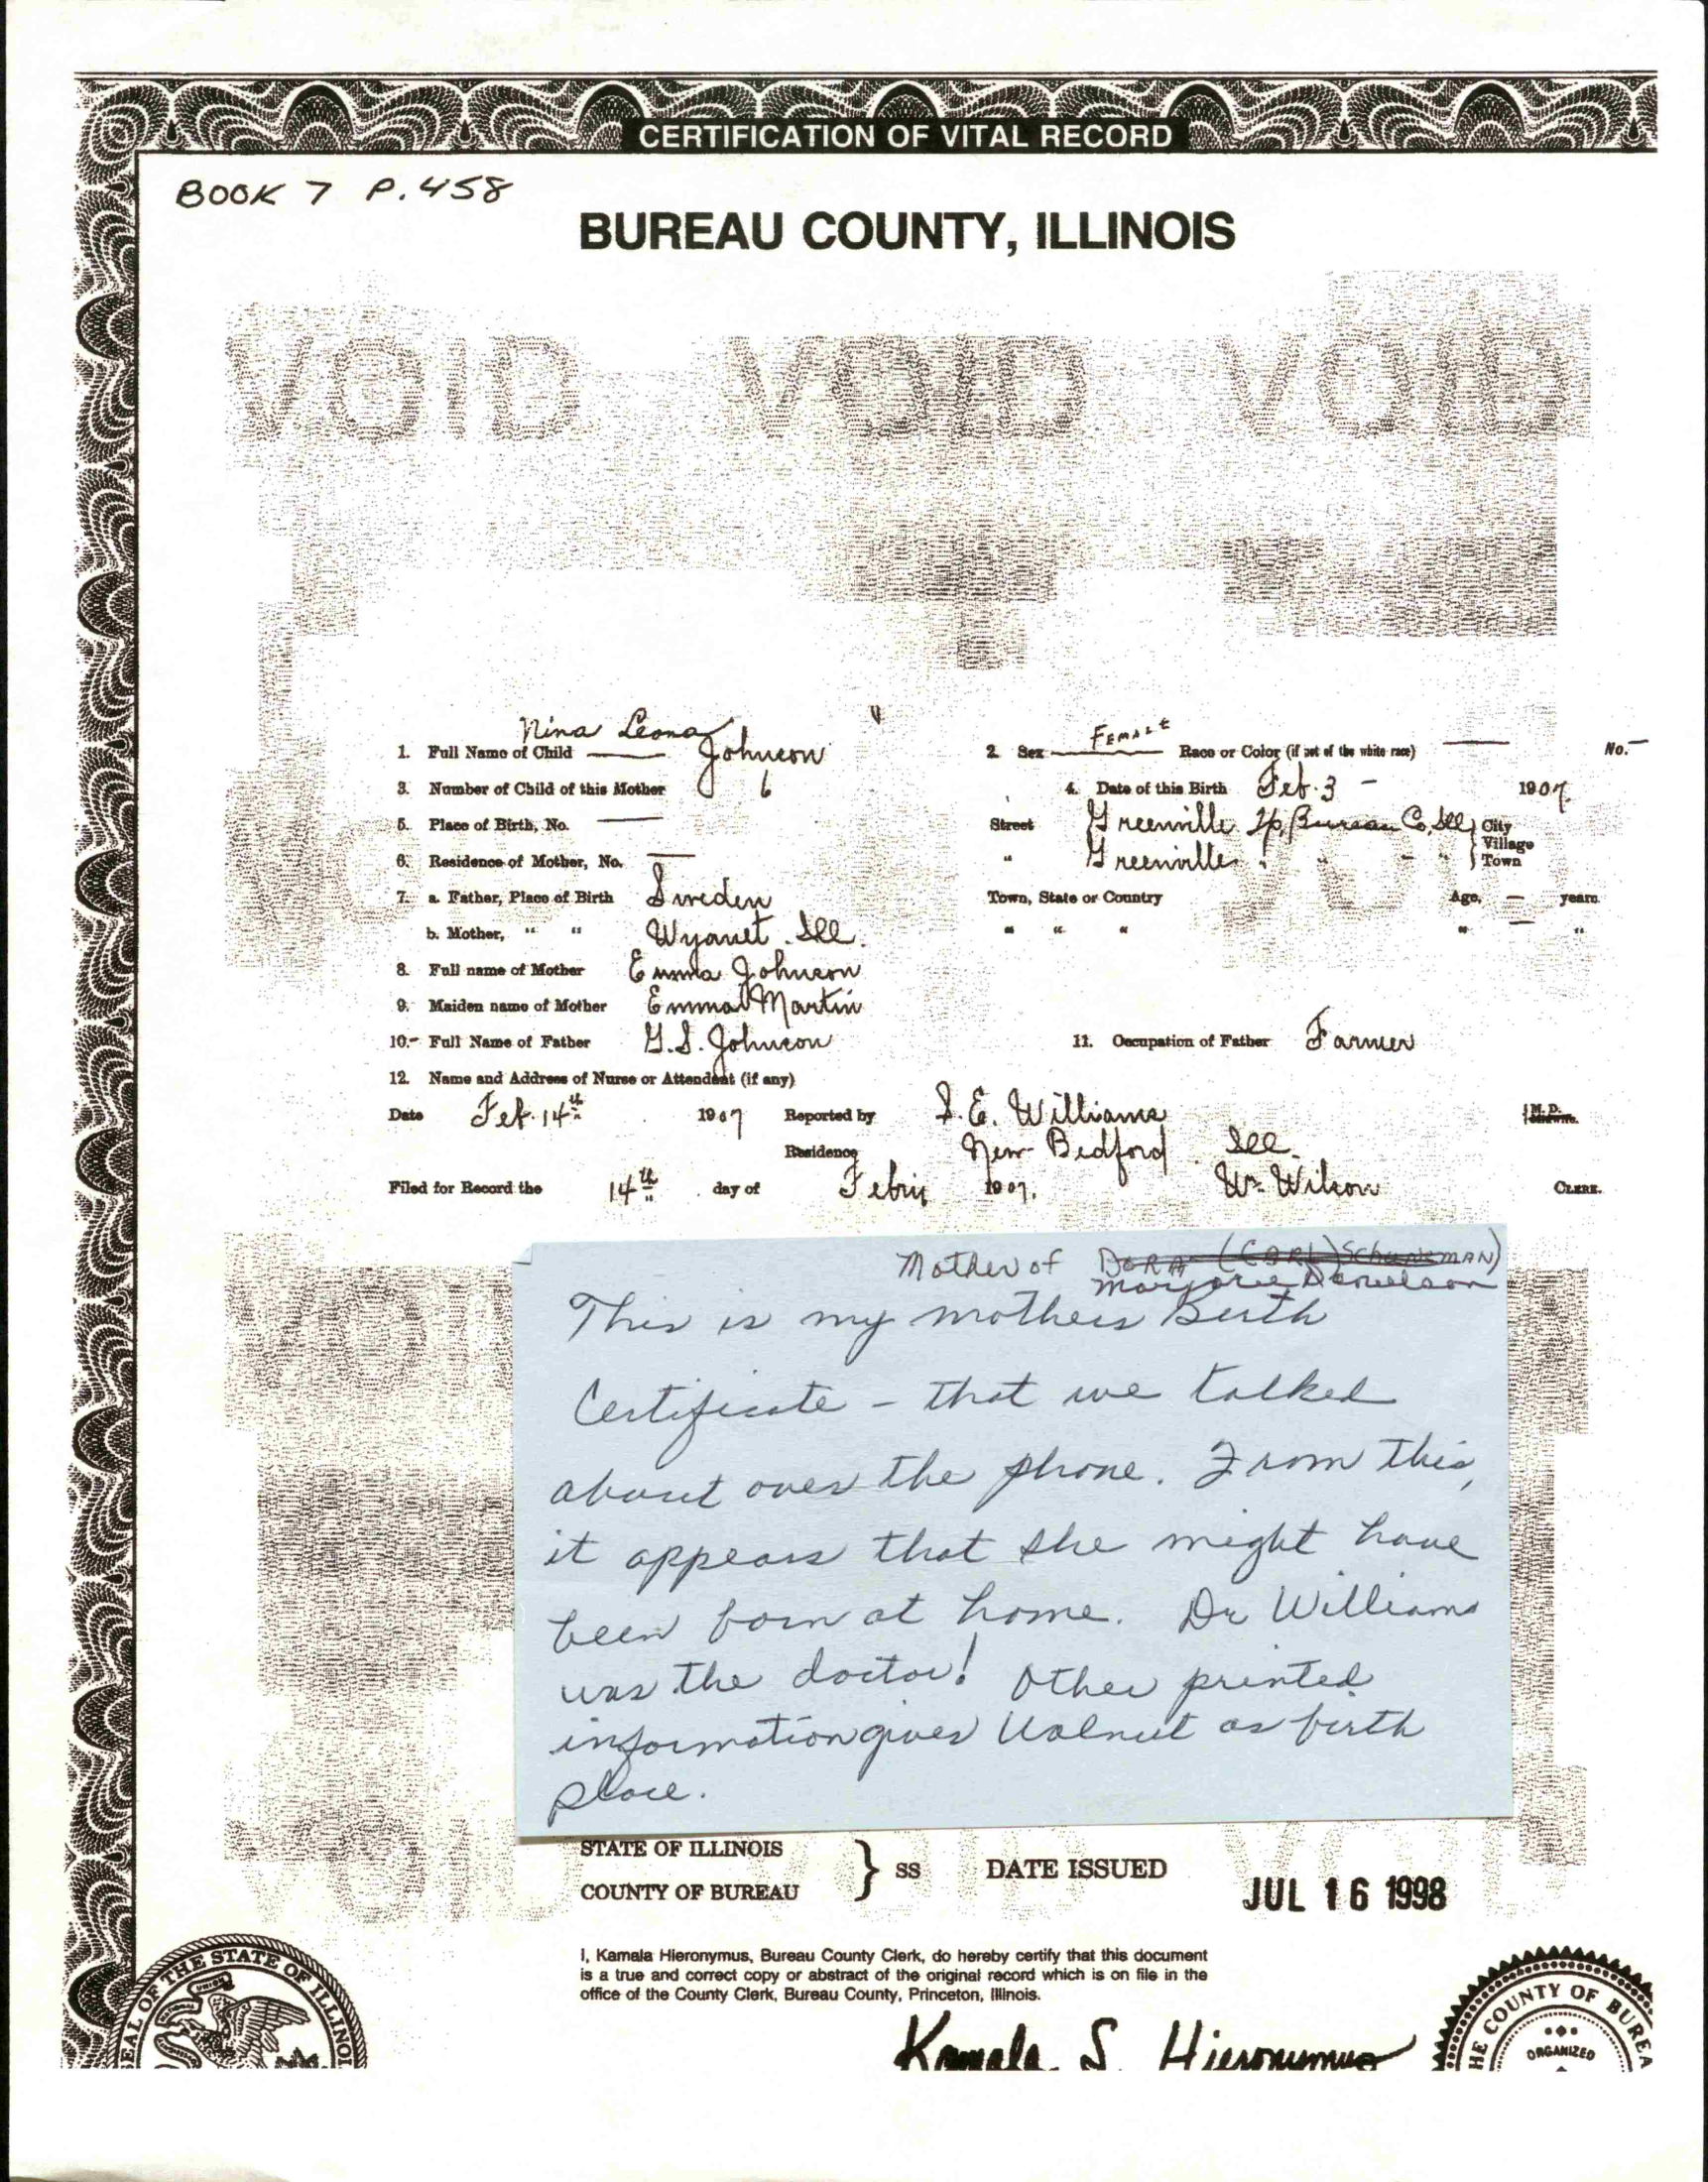 CERTIFICATION OF VITAL RECORD
BOOK 7 P. 458
BUREAU COUNTY, ILLINOIS
VOID VOID VOID
Nina Leona
1. Full Name of Child Johnson 2. Sex Female Race or Color (if not of the white race) No.
3. Number of Child of this Mother 6 4. Date of this Birth Feb. 3 - 1907
5. Place of Birth, No. Street Greenville Tp Bureau Co, Ill City
Village
6. Residence of Mother, No. " Greenville " - " Town
7. a. Father, Place of Birth Sweden Town, State or Country Age, — years
b. Mother, " " Wyanet. Ill. " " " " — "
8. Full name of Mother Emma Johnson
9. Maiden name of Mother Emma Martin
10. Full Name of Father G.S. Johnson 11. Occupation of Father Farmer
12. Name and Address of Nurse or Attendant (if any)
Date Feb. 14th 1907 Reported by S. E. Williams M. D. Midwife.
Residence New Bedford Ill.
Filed for Record the 14th day of 1907. Wm. Wilson CLERK.
Mother of DORA (CARL) SchuneMAN)
Marjorie Danielson
This is my mothers Birth
Certificate - that we talked
about over the phone. From this,
it appears that she might have
been born at home. Dr Williams
was the doctor! Other printed
information gives Walnut as birth
place.
VOID VOID VOID
STATE OF ILLINOIS
COUNTY OF BUREAU } SS DATE ISSUED JUL 16 1998
I, Kamala Hieronymus, Bureau County Clerk, do hereby certify that this document
is a true and correct copy or abstract of the original record which is on file in the
office of the County Clerk, Bureau County, Princeton, Illinois.
Kamala S. Hieronymus
SEAL OF THE STATE OF ILLINOI
HE COUNTY OF BUREA
ORGANIZED